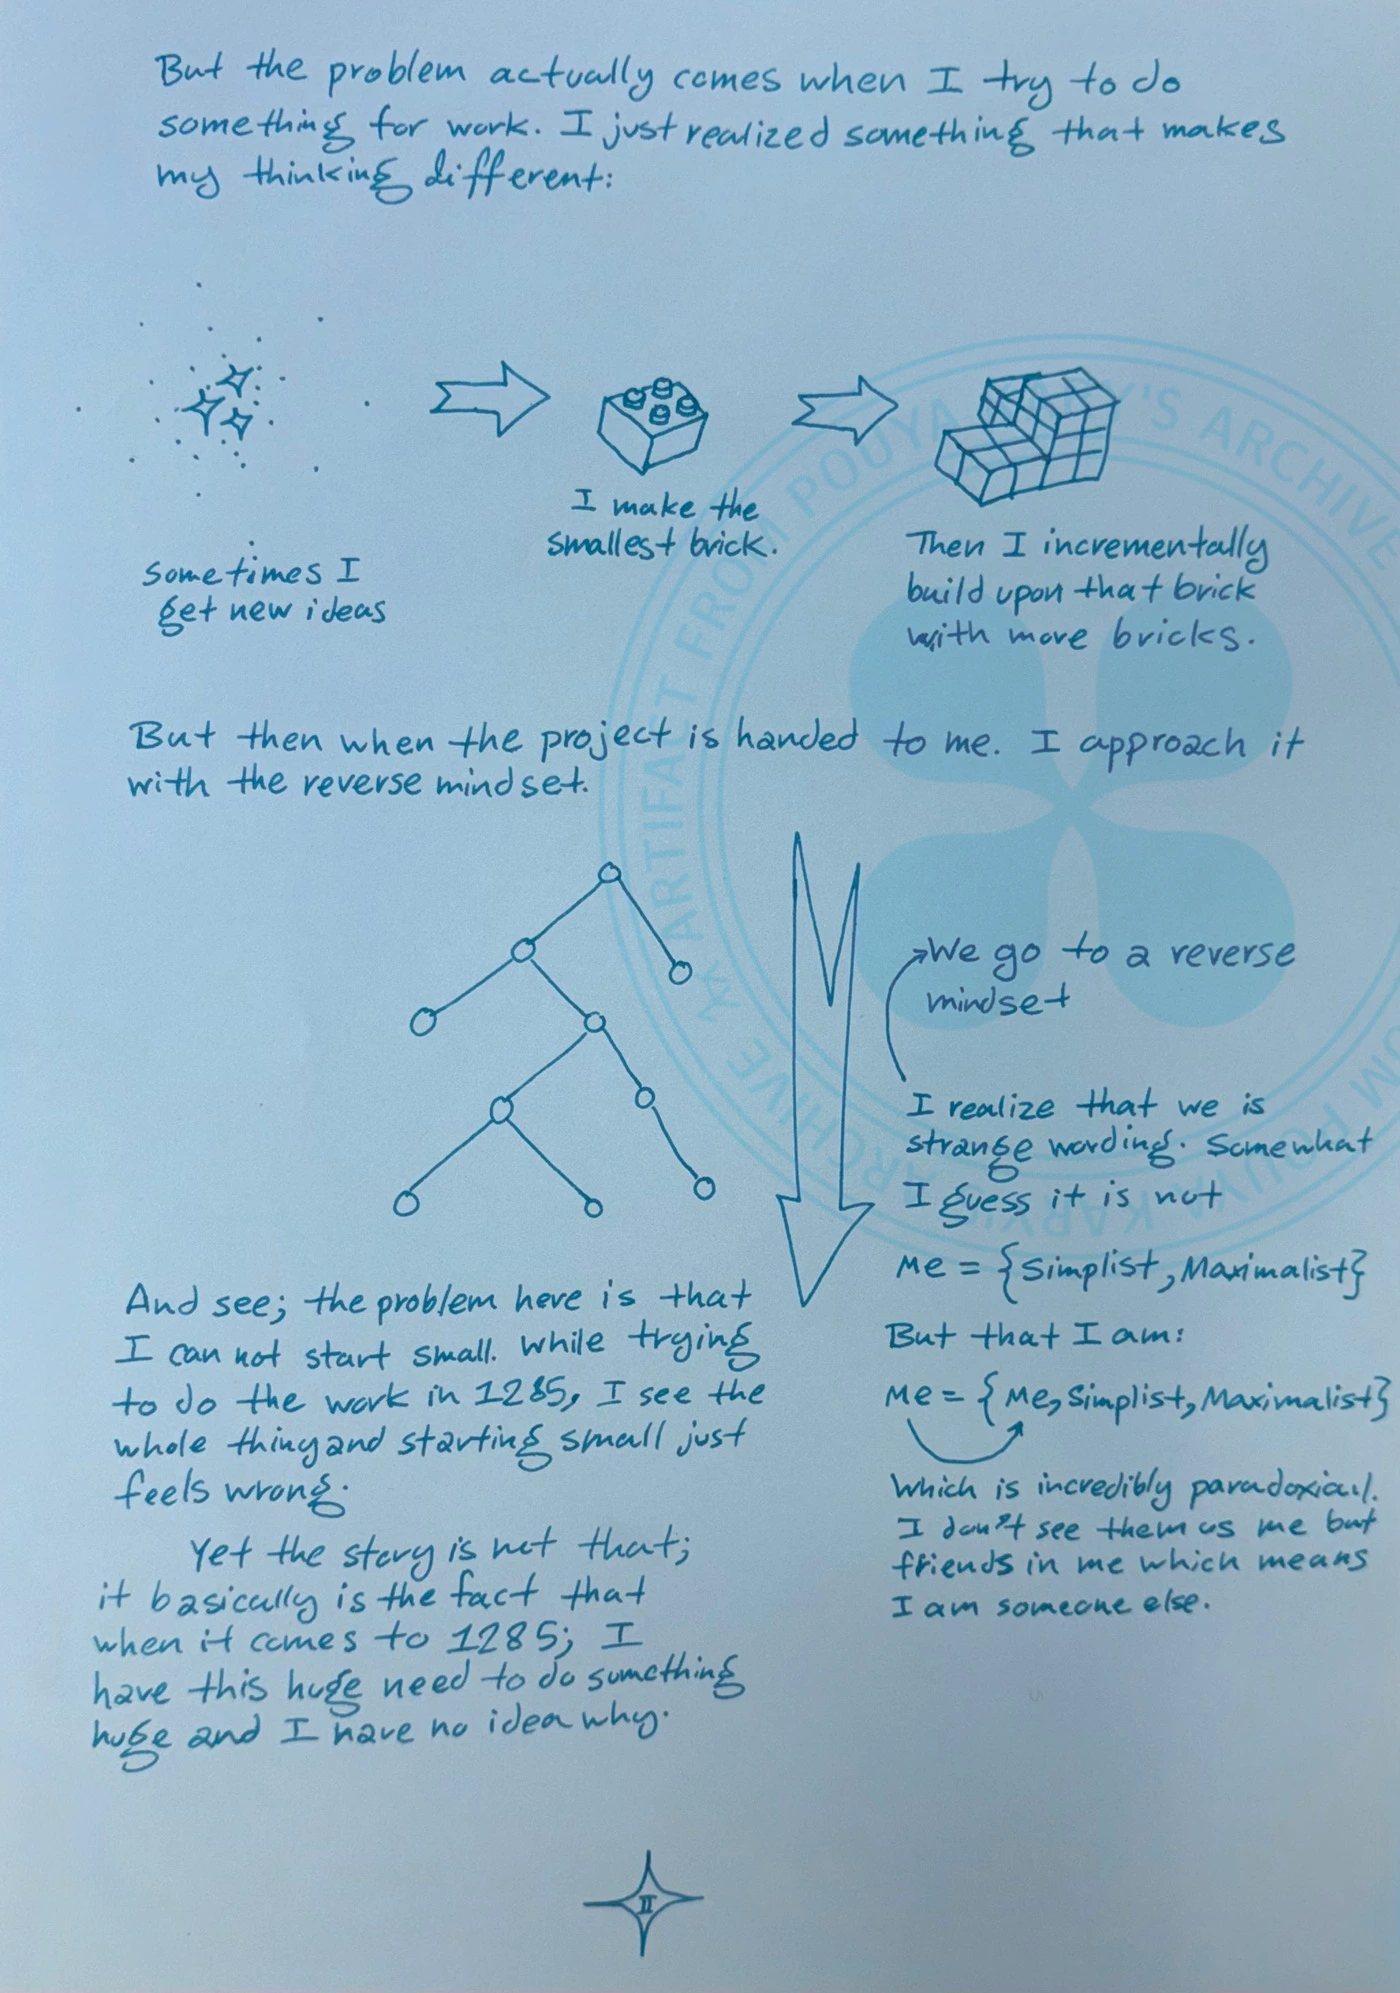 But the problem actually comes when I try to do
something for work. I just realized something that makes
my thinking different:
Sometimes I
get new ideas
I make the
smallest brick.
Then I incrementally
build upon that brick
with more bricks.
But then when the project is handed to me. I approach it
with the reverse mindset.
We go to a reverse
mindset
I realize that we is
strange wording. Somewhat
I guess it is not
Me = {Simplist, Maximalist}
But that I am:
Me = {Me, Simplist, Maximalist}
Which is incredibly paradoxial.
I don't see them as me but
friends in me which means
I am someone else.
And see; the problem here is that
I can not start small. While trying
to do the work in 1285, I see the
whole thing and starting small just
feels wrong.
Yet the story is not that;
it basically is the fact that
when it comes to 1285; I
have this huge need to do something
huge and I have no idea why.
II
ARTIFACT FROM POUYA 'S ARCHIVE
ARCHIVE